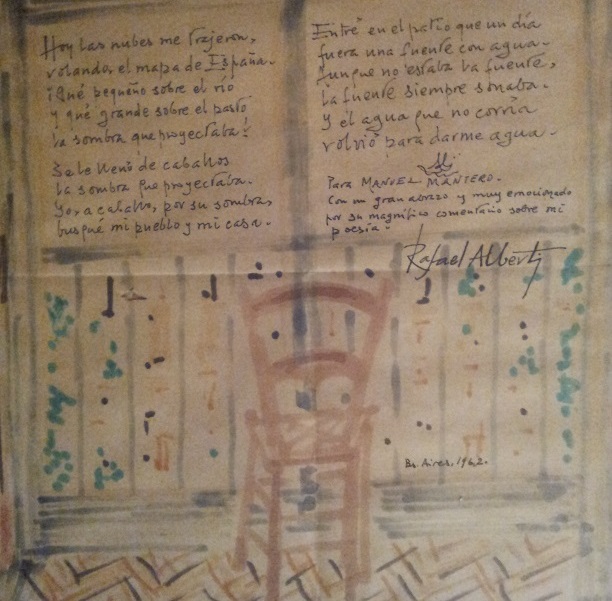 Hoy las nubes me trajeron,
volando, el mapa de España.
¡Qué pequeño sobre el río
y qué grande sobre el pasto
la sombra que proyectaba!
Se le llenó de caballos
la sombra que proyectaba.
Yo, a caballo, por su sombra,
busqué mi pueblo y mi casa.
Entré en el patio que un día
fuera una fuente con agua.
Aunque no estaba la fuente,
la fuente siempre sonaba.
Y el agua que no corría
volvió para darme agua.
Para MANUEL MANTERO.
Con un gran abrazo y muy emocionado
por su magnífico comentario sobre mi
poesía.
Rafael Alberti
Bs. Aires, 1962.